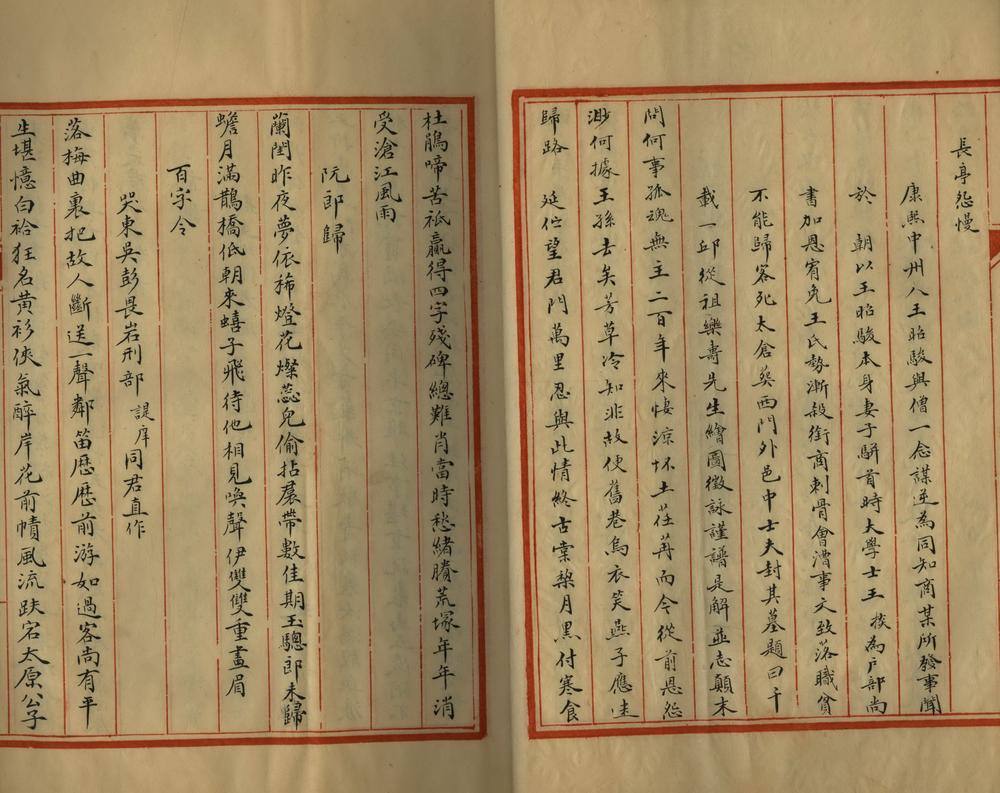 長亭怨慢
康熙中州人王昭駿與僧一念謀逆為同知商某所發事聞
於 朝以王昭駿本身妻子駢首時大學士王 掞為戶部尚
書加恩宥免王氏勢漸殺銜商刺骨會漕事文致落職貧
不能歸客死太倉葬西門外邑中士夫封其墓題曰千
載一邱從祖樂壽先生繪圖徵詠謹譜是解並志顛末
問何事孤魂無主二百年來悽涼抔土荏苒而今從前恩怨
渺何據王孫去矣芳草冷知非故便舊巷烏衣笑燕子應迷
歸路 延佇望君門萬里忍與此情終古棠梨月黑付寒食
杜鵑啼苦祗贏得四字殘碑總難肖當時愁緒賸荒塚年年消
受滄江風雨
阮郎歸
蘭閨昨夜夢依稀燈花燦蕊兒偷拈羅帶數佳期玉驄郎未歸
蟾月滿鵲橋低朝來蟢子飛待他相見喚聲伊雙雙重畫眉
百字令
哭東吳彭畏岩刑部 諟庠同君直作
落梅曲裏把故人斷送一聲鄰笛歷歷前游如過客尚有平
生堪憶白袷狂名黃衫俠氣醉岸花前幘風流跌宕太原公子